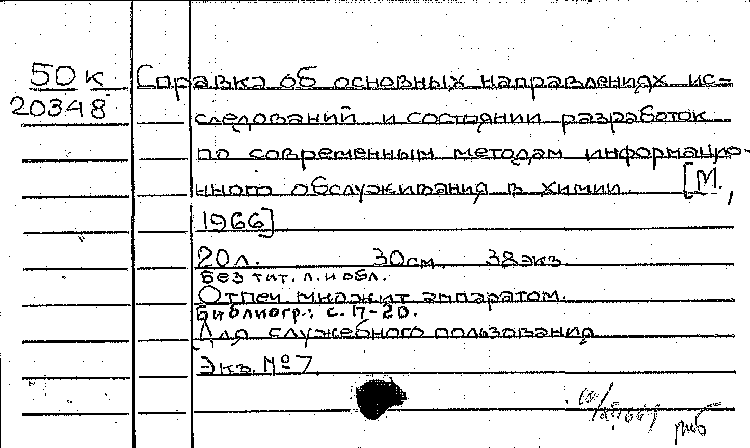 50к Справка об основных направлениях ис-
20348 следований и состоянии разработок
по современным методам информацио-
нного обслуживания в химии. [М.,
1966]
20л. 30см 38экз.
Без тит. л. и обл.
Отпеч множит аппаратом.
Библиогр.: с. 17-20.
Для служебного пользования
Экз. №7